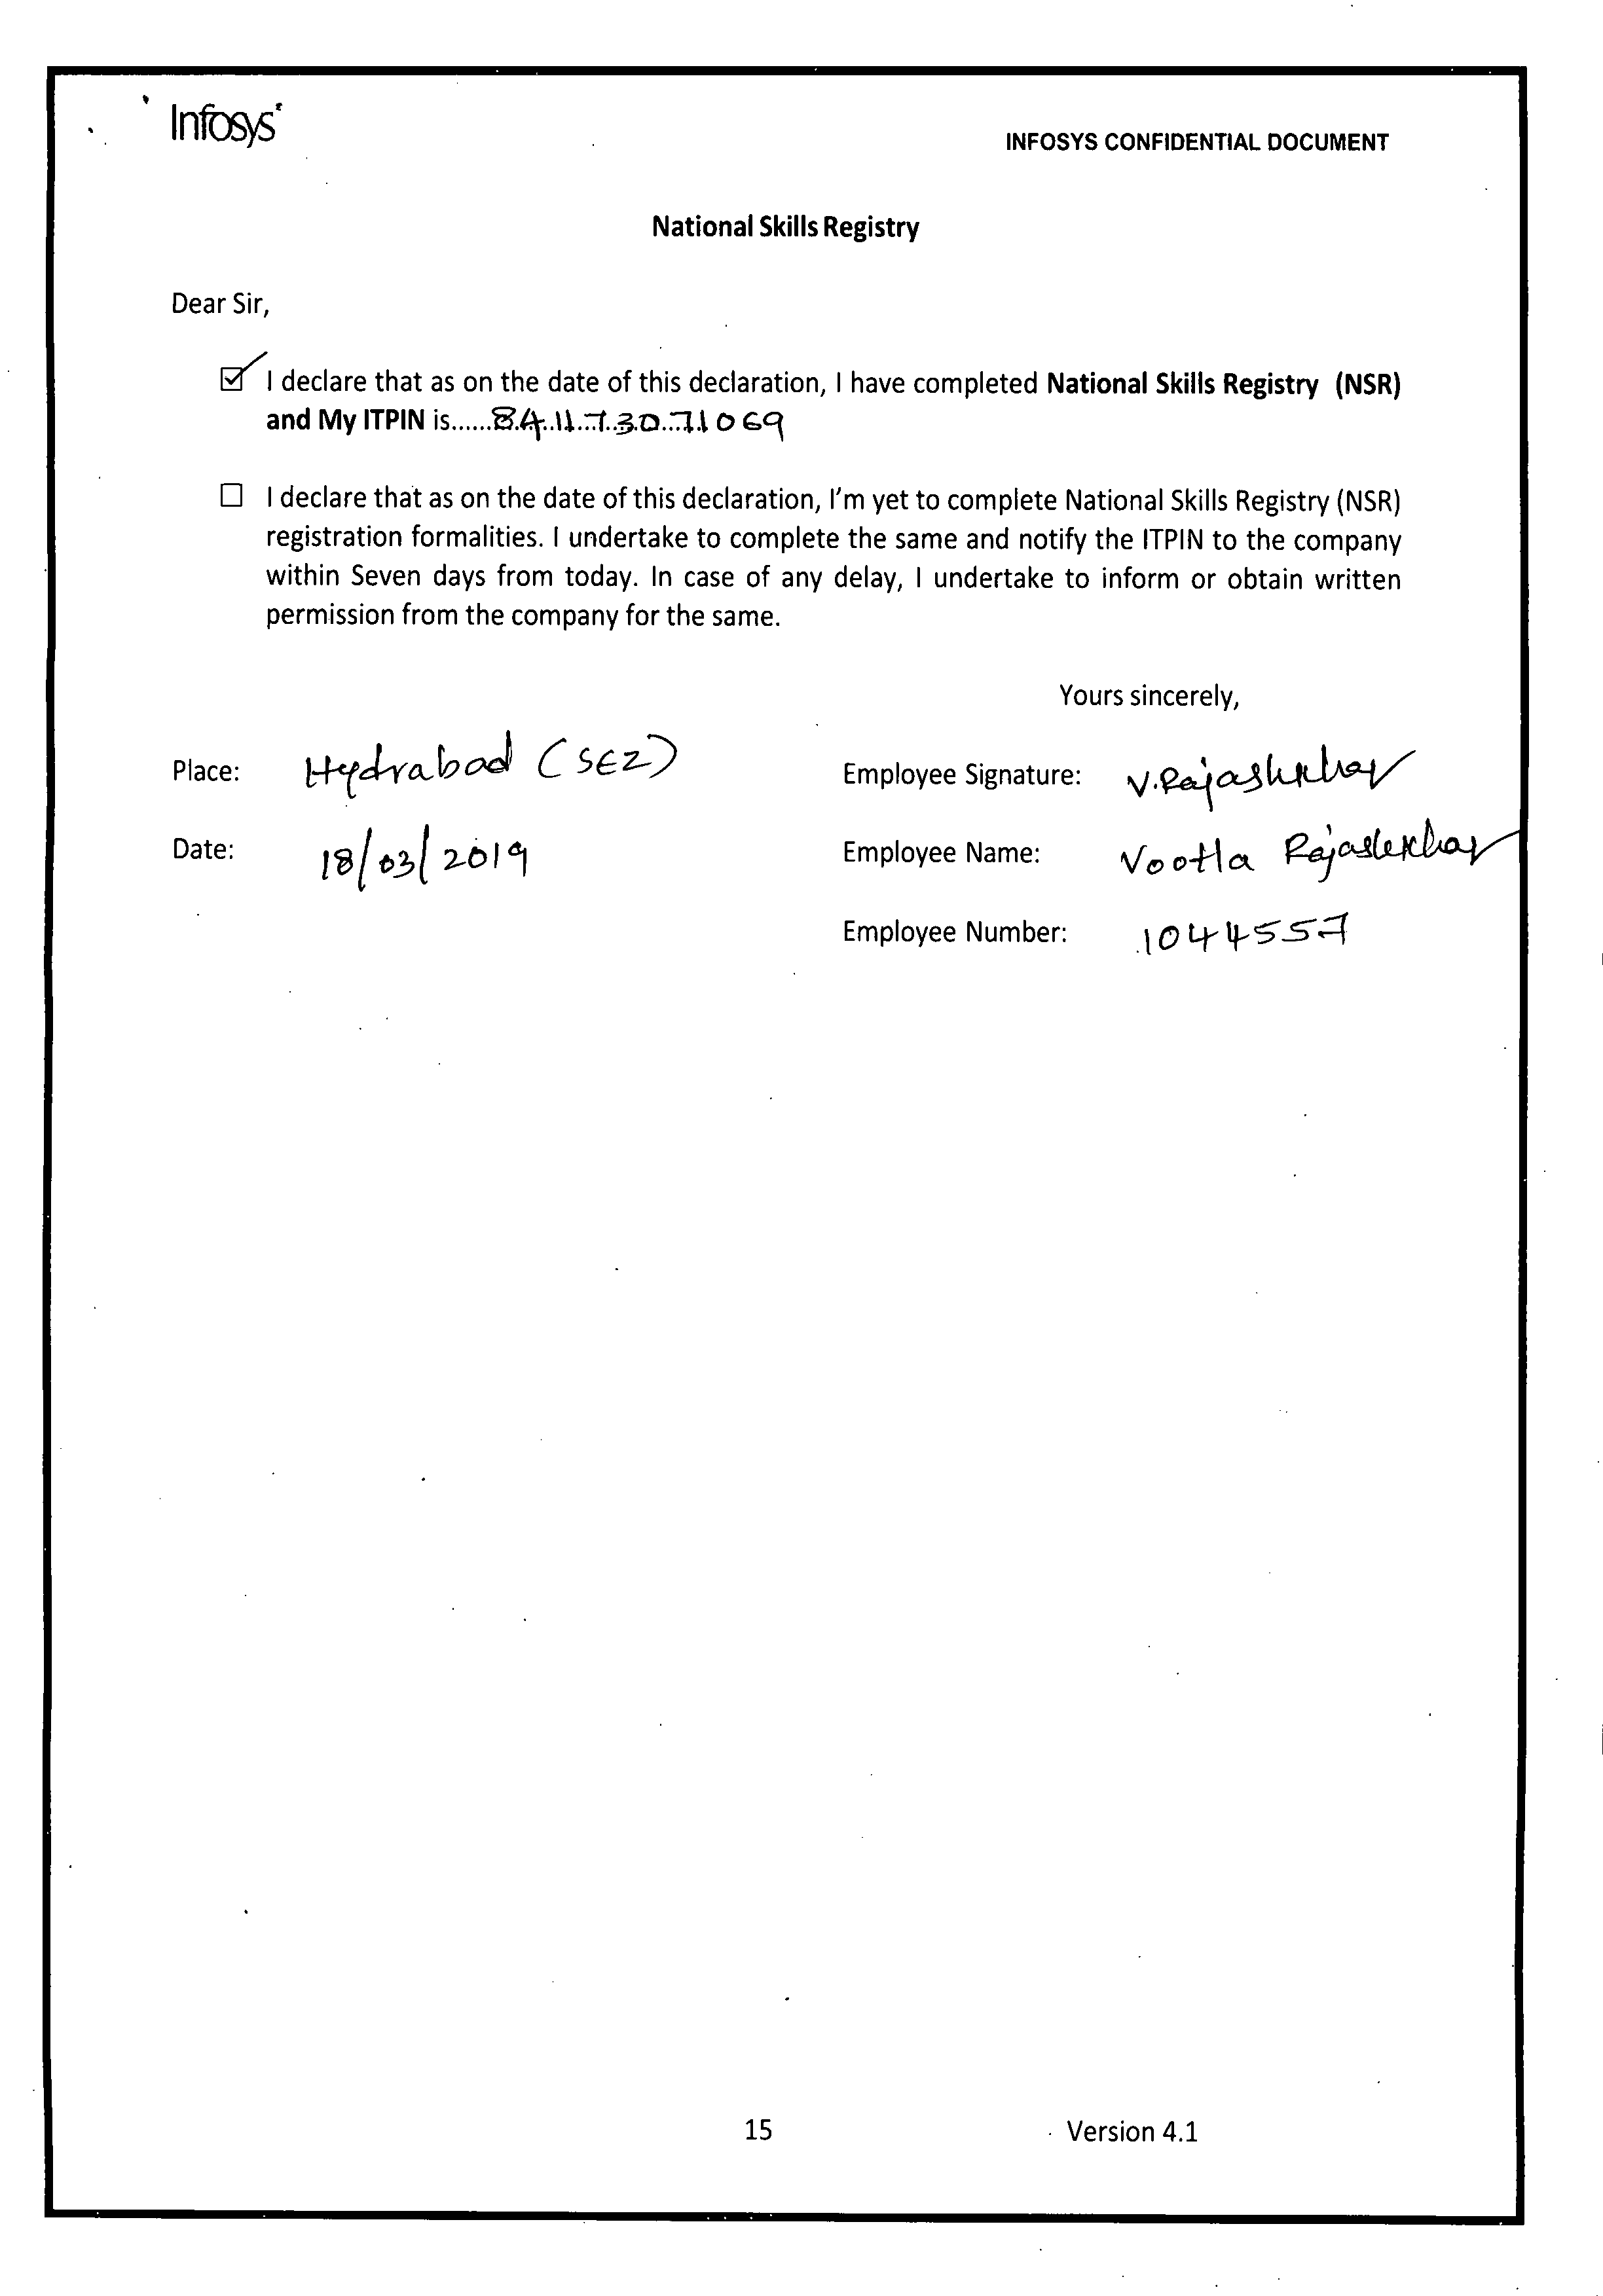 Infosys
INFOSYS CONFIDENTIAL DOCUMENT
National Skills Registry
Dear Sir,
☑ I declare that as on the date of this declaration, I have completed National Skills Registry (NSR)
and My ITPIN is......841173071069
☐ I declare that as on the date of this declaration, I'm yet to complete National Skills Registry (NSR)
registration formalities. I undertake to complete the same and notify the ITPIN to the company
within Seven days from today. In case of any delay, I undertake to inform or obtain written
permission from the company for the same.
Yours sincerely,
Place: Hydrabad (SEZ)
Employee Signature: V.Rajashekhar
Date: 18/03/2019
Employee Name: Vootla Rajashekhar
Employee Number: 1044557
15
Version 4.1